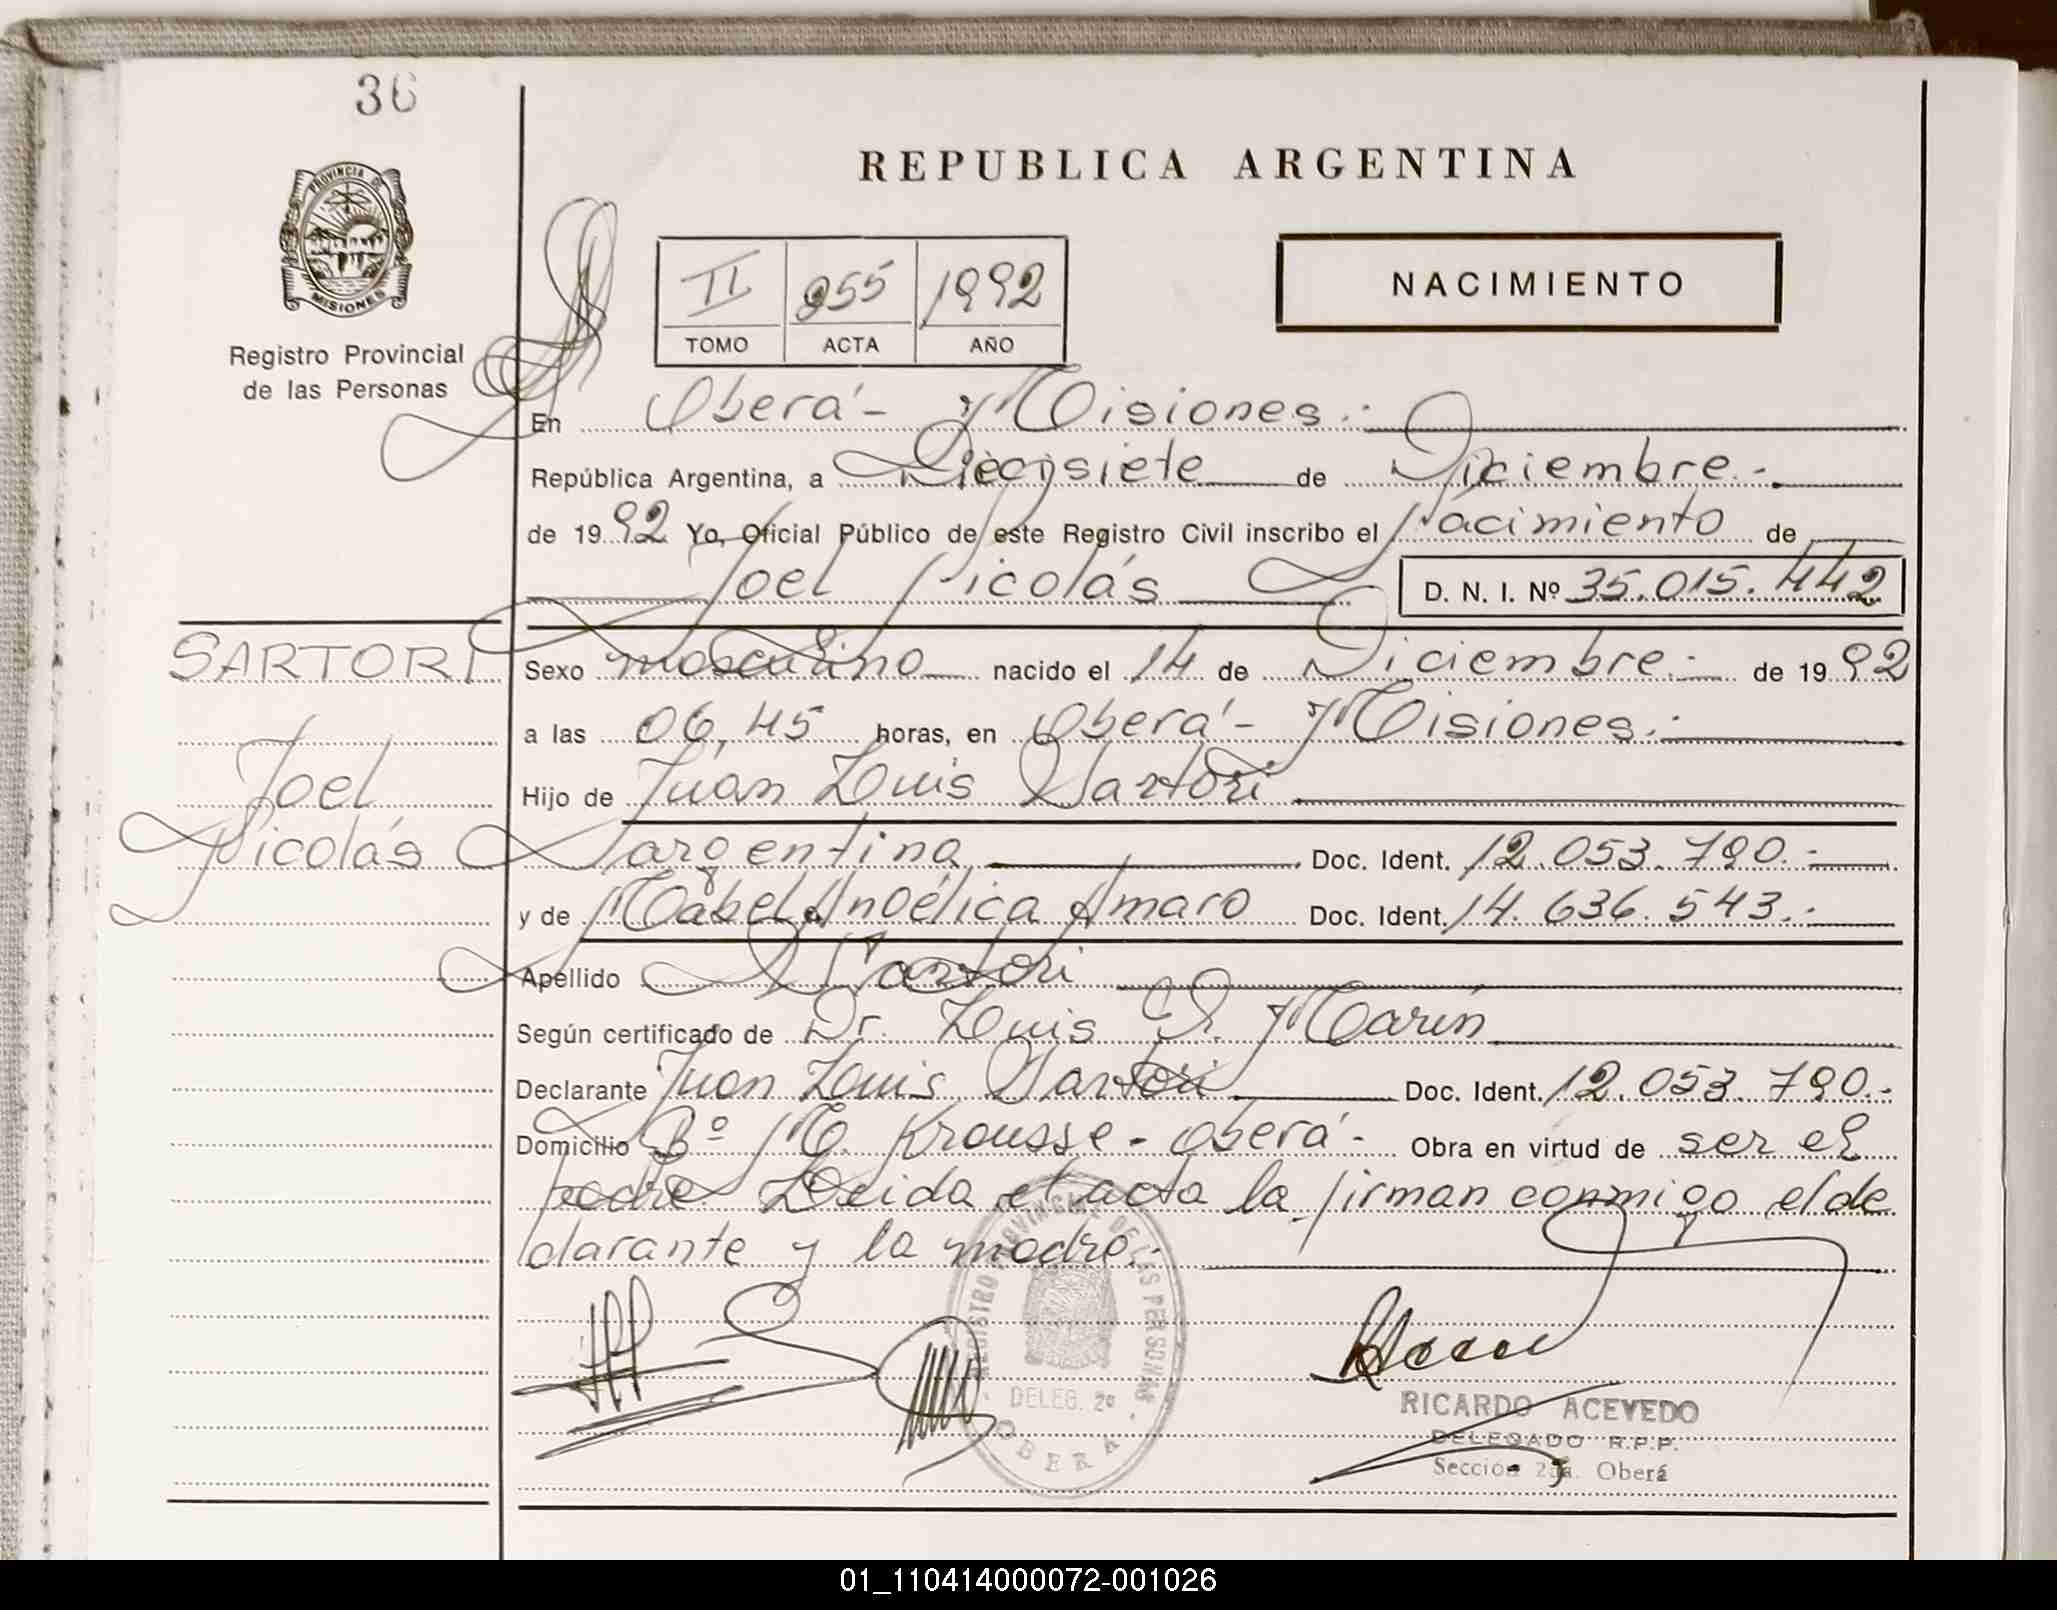 36
REPUBLICA ARGENTINA
PROVINCIA DE
MISIONES
Registro Provincial
de las Personas
II 955 1992
TOMO ACTA AÑO
NACIMIENTO
En Oberá - Misiones.-
República Argentina, a Diecisiete de Diciembre.-
de 1992 Yo, Oficial Público de este Registro Civil inscribo el Nacimiento de
Joel Nicolás D. N. I. Nº 35.015.442
SARTORI
Sexo masculino nacido el 14 de Diciembre.- de 1992
a las 06,45 horas, en Oberá - Misiones.-
Joel
Hijo de Juan Luis Sartori
Nicolás
argentina Doc. Ident. 12.053.790.-
y de Mabel Angélica Amaro Doc. Ident. 14.636.543.-
Apellido Sartori
Según certificado de Dr. Luis Marín
Declarante Juan Luis Sartori Doc. Ident. 12.053.790.-
Domicilio Bº M. Krausse - Oberá - Obra en virtud de ser el
padre Leida el acta la firman conmigo el de
clarante y la madre.-
REGISTRO PROVINCIAL DE LAS PERSONAS
DELEG. 2ª
OBERA
RICARDO ACEVEDO
DELEGADO R.P.P.
Sección 2da. Oberá
01_110414000072-001026